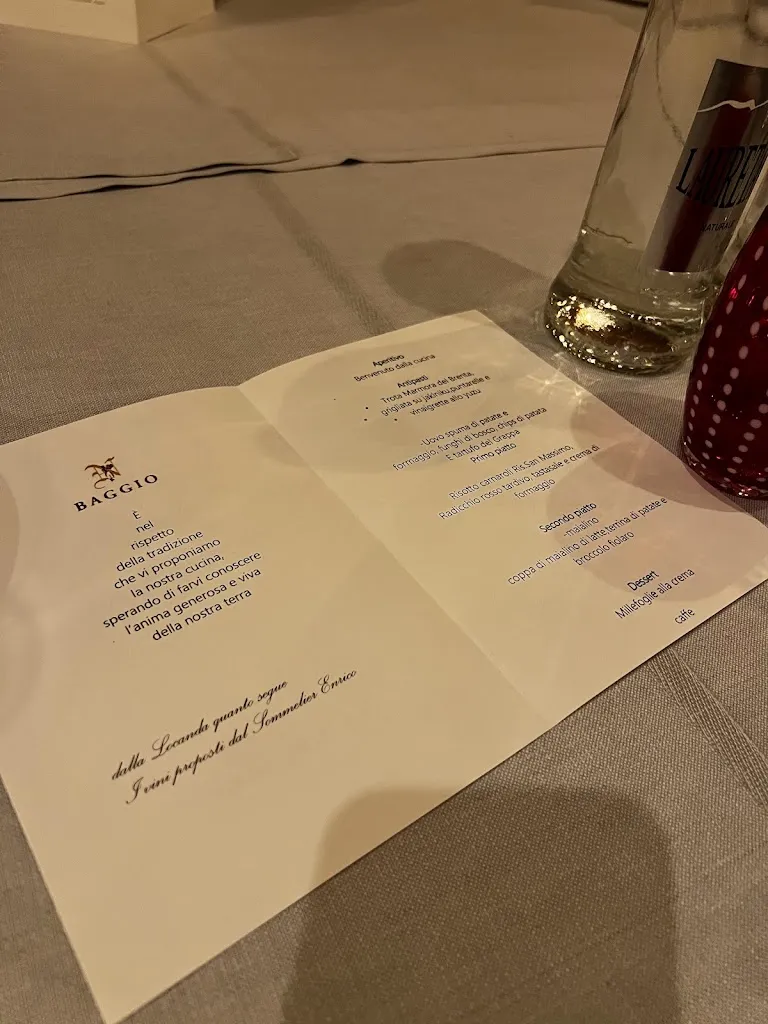 BAGGIO
È
nel
rispetto
della tradizione
che vi proponiamo
la nostra cucina,
sperando di farvi conoscere
l'anima generosa e viva
della nostra terra
dalla Locanda quanto segue
I vini proposti dal Sommelier Enrico
Aperitivo
Benvenuto dalla cucina
Antipasti
• Trota Marmora del Brenta,
• grigliata su jakiniku,puntarelle e
• vinaigrette allo yuzu
-Uovo spuma di patate e
formaggio, funghi di bosco, chips di patata
E tartufo del Grappa
Primo piatto
Risotto carnaroli Ris.San Massimo,
Radicchio rosso tardivo, tastasale e crema di
formaggio
Secondo piatto
-maialino
coppa di maialino di latte,terrina di patate e
broccolo fiolaro
Dessert
Millefoglie alla crema
caffe
LAURE
NATURALE